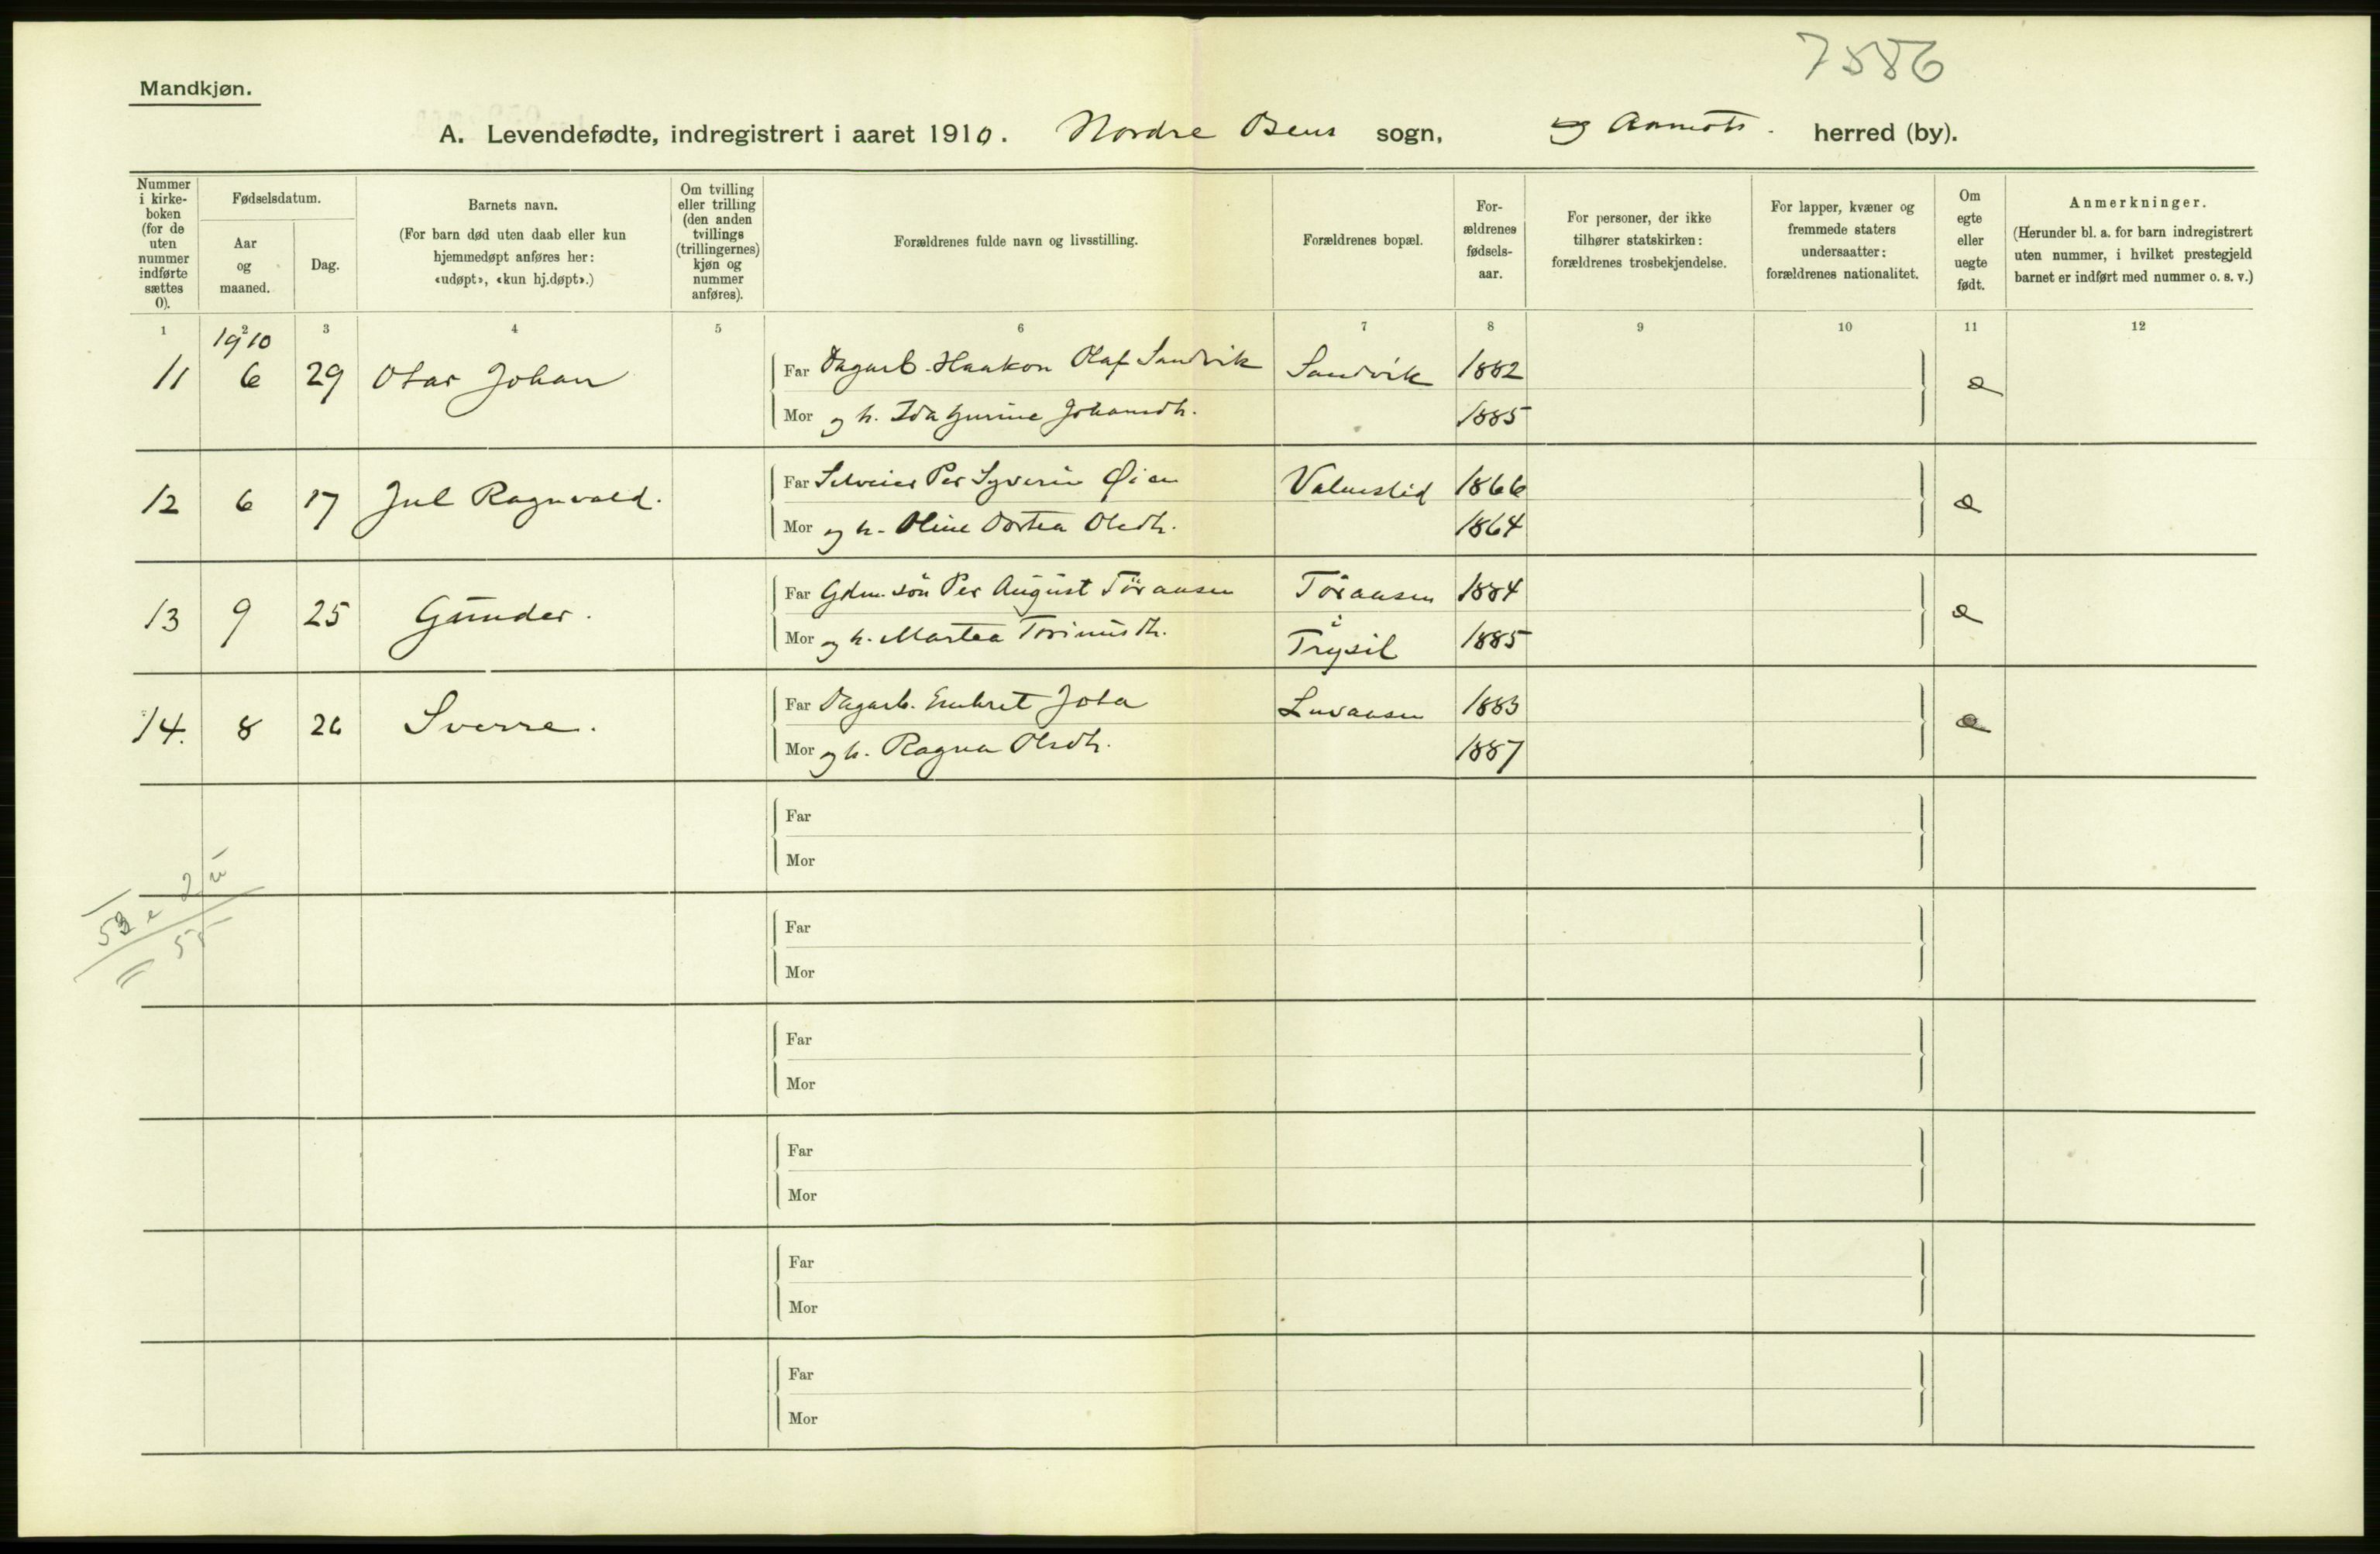 7886
Mandkjøn.
A. Levendefødte, indregistrert i aaret 1910. Nordre Osens sogn, Aamots. herred (by).
Nummer i kirkeboken (for de uten nummer indførte sættes 0).
Fødselsdatum.
Aar og maaned.
Dag.
Barnets navn.
(For barn død uten daab eller kun hjemmedøpt anføres her: «udøpt», «kun hj.døpt».)
Om tvilling eller trilling (den anden tvillings (trillingernes) kjøn og nummer anføres).
Forældrenes fulde navn og livsstilling.
Forældrenes bopæl.
Forældrenes fødselsaar.
For personer, der ikke tilhører statskirken: forældrenes trosbekjendelse.
For lapper, kvæner og fremmede staters undersaatter: forældrenes nationalitet.
Om egte eller uegte født.
Anmerkninger.
(Herunder bl. a. for barn indregistrert uten nummer, i hvilket prestegjeld barnet er indført med nummer o. s. v.)
1 2 3 4 5 6 7 8 9 10 11 12
1910
11 6 29 Otar Johan Far Dagarb. Haakon Olaf Sandvik Sandvik 1882 e
Mor og h. Ida Gurine Johansdtr. 1885
12 6 17 Jul Ragnvald. Far Selveier Per Syverin Øien Valmestid 1866 e
Mor og h. Oline Dortea Olsdtr. 1864
13 9 25 Gunder. Far Gdm. søn Per August Tøraasen Tøraasen 1884 e
Mor og h. Martea 1885
i Trysil
14. 8 26 Sverre. Far Dagarb. Embret Jota 1883 e
Mor og h. Ragna Olsdtr. 1887
Far
Mor
53 e 2 u
55
Far
Mor
Far
Mor
Far
Mor
Far
Mor
Far
Mor